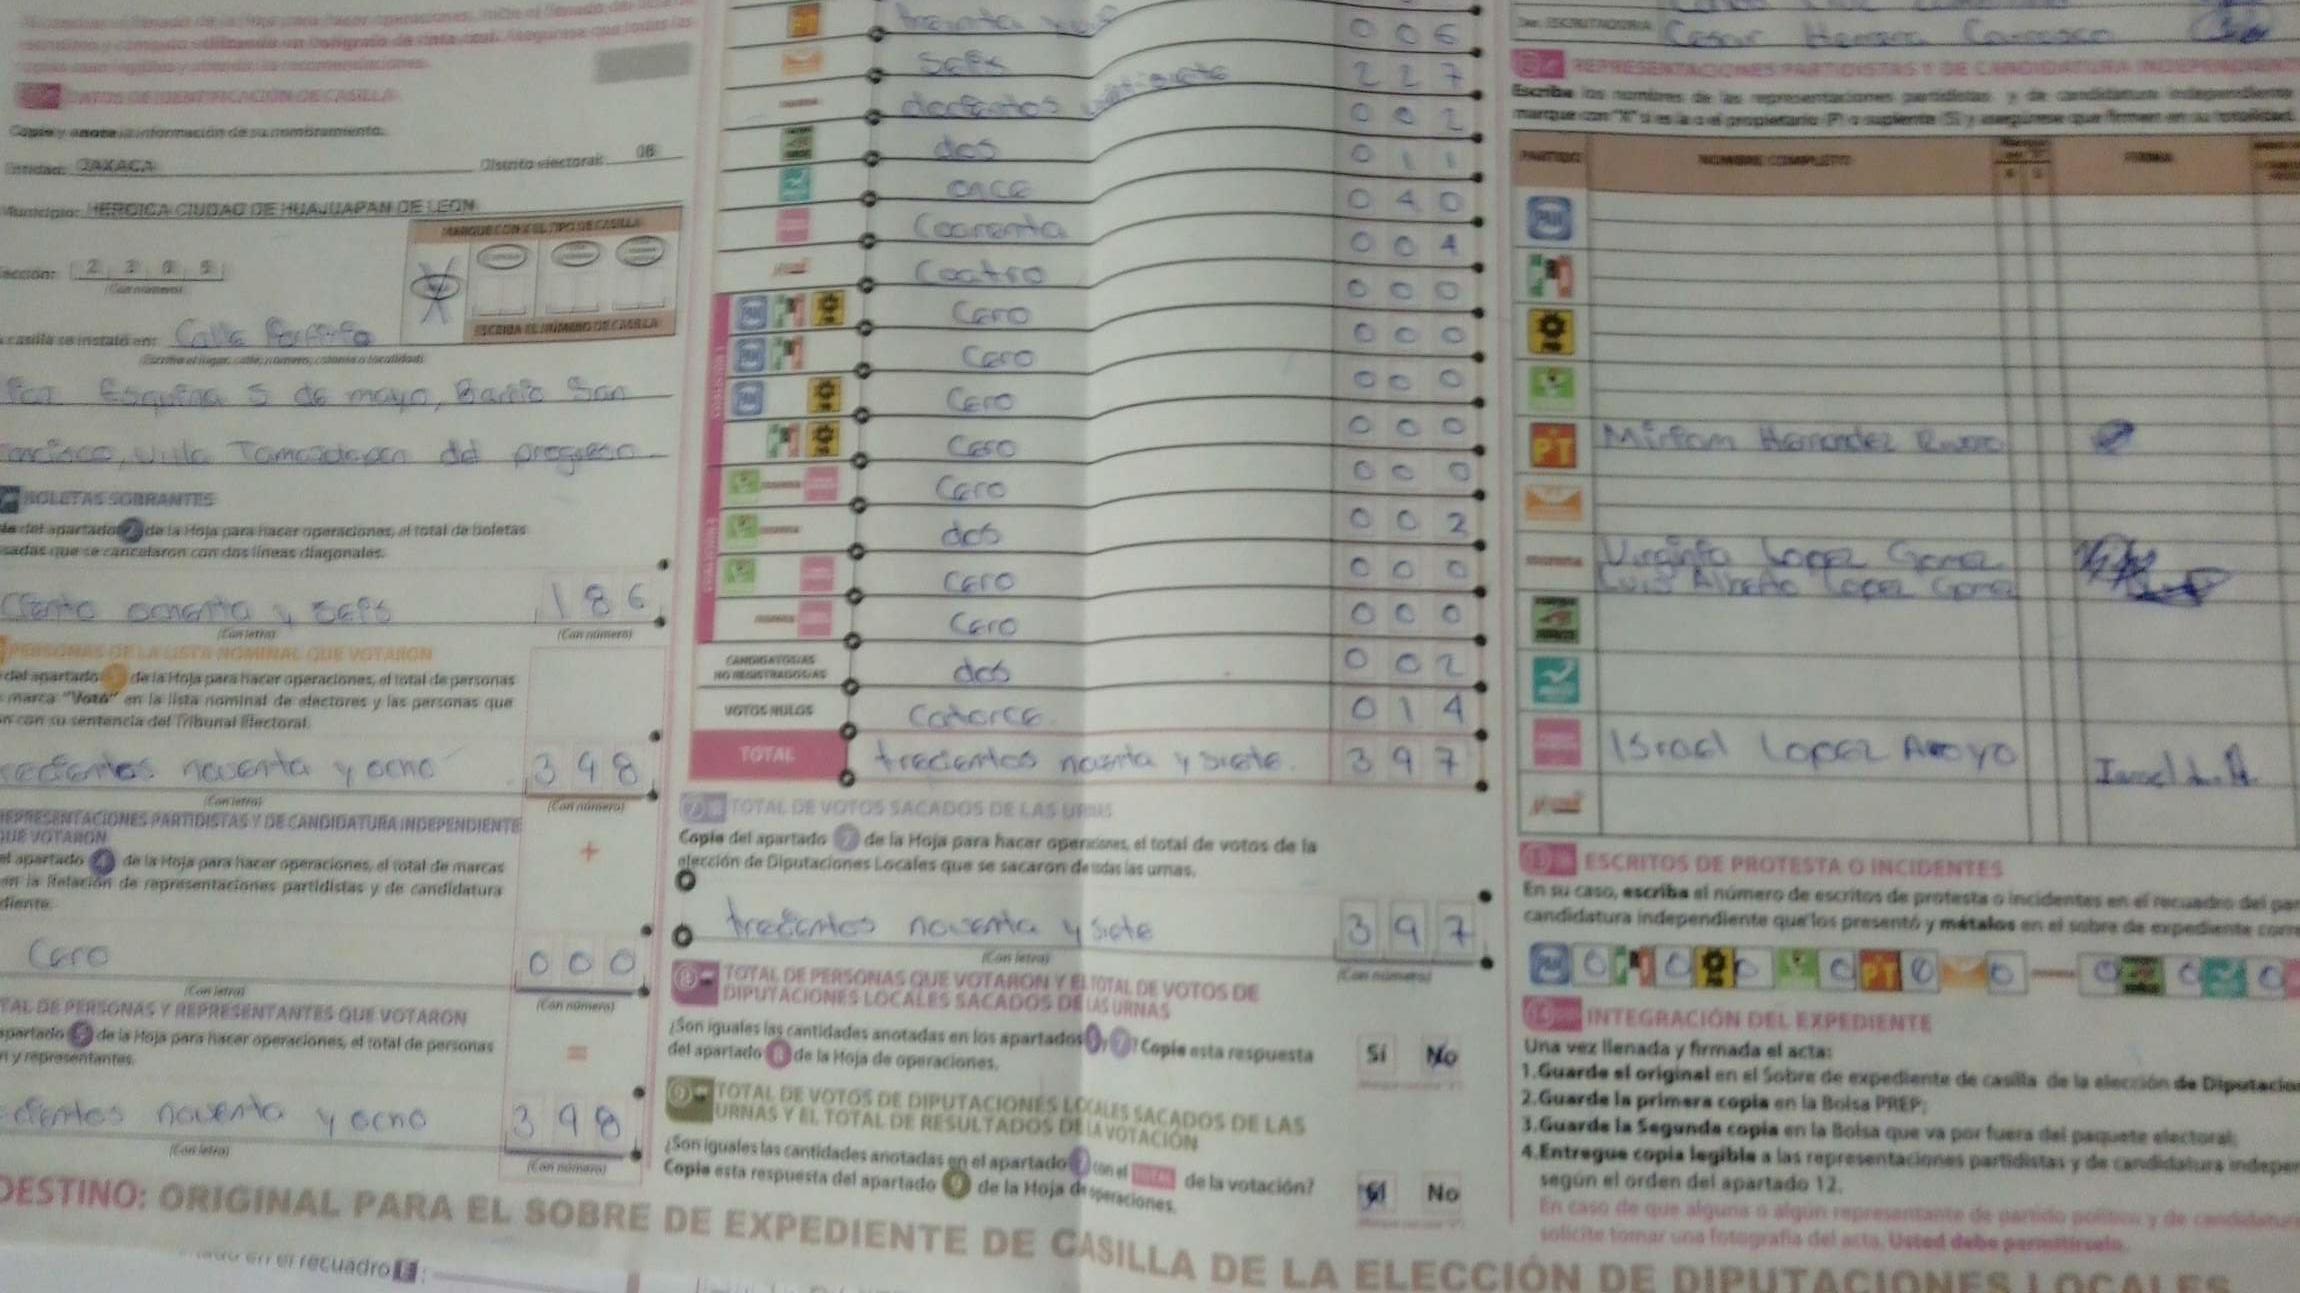 DATOS DE IDENTIFICACIÓN DE CASILLA
Copie y anote la información de su nombramiento.
Entidad: OAXACA Distrito electoral: 06
Municipio: HEROICA CIUDAD DE HUAJUAPAN DE LEON
MARQUE CON X EL TIPO DE CASILLA
(Con número)
ESCRIBA EL NÚMERO DE CASILLA
a casilla se instaló en: Calle Porfirio
(Escriba el lugar: calle, número, colonia o localidad)
Esquina 5 de mayo, Barrio San
del progreso
BOLETAS SOBRANTES
del apartado 2 de la Hoja para hacer operaciones, el total de boletas
sadas que se cancelaron con dos líneas diagonales.
Ciento ochenta y seis 186
(Con letra) (Con número)
PERSONAS DE LA LISTA NOMINAL QUE VOTARON
del apartado de la Hoja para hacer operaciones, el total de personas
marca "Votó" en la lista nominal de electores y las personas que
n con su sentencia del Tribunal Electoral.
recientos noventa y ocho 398
(Con letra) (Con número)
REPRESENTACIONES PARTIDISTAS Y DE CANDIDATURA INDEPENDIENTE
QUE VOTARON
el apartado 4 de la Hoja para hacer operaciones, el total de marcas
en la Relación de representaciones partidistas y de candidatura
diente.
+
Cero 000
(Con letra) (Con número)
TAL DE PERSONAS Y REPRESENTANTES QUE VOTARON
apartado 5 de la Hoja para hacer operaciones, el total de personas
n y representantes.
=
cientos noventa y ocho 398
(Con letra) (Con número)
treinta 006
Seis 227
docientos veintisiete 002
dos 011
once 040
Coarenta 004
Coatro 000
Cero 000
Cero 000
Cero 000
Cero 000
Cero 002
dos 000
Cero 000
Cero
CANDIDATOS/AS
NO REGISTRADOS/AS dos 002
VOTOS NULOS Catorce 014
TOTAL trecientos noventa y siete. 397
7 TOTAL DE VOTOS SACADOS DE LAS URNAS
Copie del apartado 7 de la Hoja para hacer operaciones, el total de votos de la
elección de Diputaciones Locales que se sacaron de todas las urnas.
trecientos noventa y siete 397
(Con letra) (Con número)
8 TOTAL DE PERSONAS QUE VOTARON Y EL TOTAL DE VOTOS DE
DIPUTACIONES LOCALES SACADOS DE LAS URNAS
¿Son iguales las cantidades anotadas en los apartados y 7? Copie esta respuesta
del apartado 8 de la Hoja de operaciones.
Sí No
9 TOTAL DE VOTOS DE DIPUTACIONES LOCALES SACADOS DE LAS
URNAS Y EL TOTAL DE RESULTADOS DE LA VOTACIÓN
¿Son iguales las cantidades anotadas en el apartado 7 con el TOTAL de la votación?
Copie esta respuesta del apartado 9 de la Hoja de operaciones.
Sí No
Cesar Herrera Carrasco
REPRESENTACIONES PARTIDISTAS Y DE CANDIDATURA INDEPENDIENTE
Escriba los nombres de las representaciones partidistas y de candidatura independiente
marque con "X" si es la o el propietario (P) o suplente (S) y asegúrese que firmen en su totalidad.
PARTIDO NOMBRE COMPLETO FIRMA
PAN
PRD
PT Miriam Hernandez
morena Virginia Lopez Gomez
Luis Alberto Lopez Gomez
Israel Lopez Arroyo Israel L. A.
13 ESCRITOS DE PROTESTA O INCIDENTES
En su caso, escriba el número de escritos de protesta o incidentes en el recuadro del par
candidatura independiente que los presentó y métalos en el sobre de expediente corre
PAN 0 0 0 0 PT 0 0 0 0 0
14 INTEGRACIÓN DEL EXPEDIENTE
Una vez llenada y firmada el acta:
1.Guarde el original en el Sobre de expediente de casilla de la elección de Diputacio
2.Guarde la primera copia en la Bolsa PREP;
3.Guarde la Segunda copia en la Bolsa que va por fuera del paquete electoral;
4.Entregue copia legible a las representaciones partidistas y de candidatura indepen
según el orden del apartado 12.
En caso de que alguna o algún representante de partido político y de candidatura
solicite tomar una fotografía del acta, Usted debe permitírselo.
DESTINO: ORIGINAL PARA EL SOBRE DE EXPEDIENTE DE CASILLA DE LA ELECCIÓN DE DIPUTACIONES LOCALES
en el recuadro E :